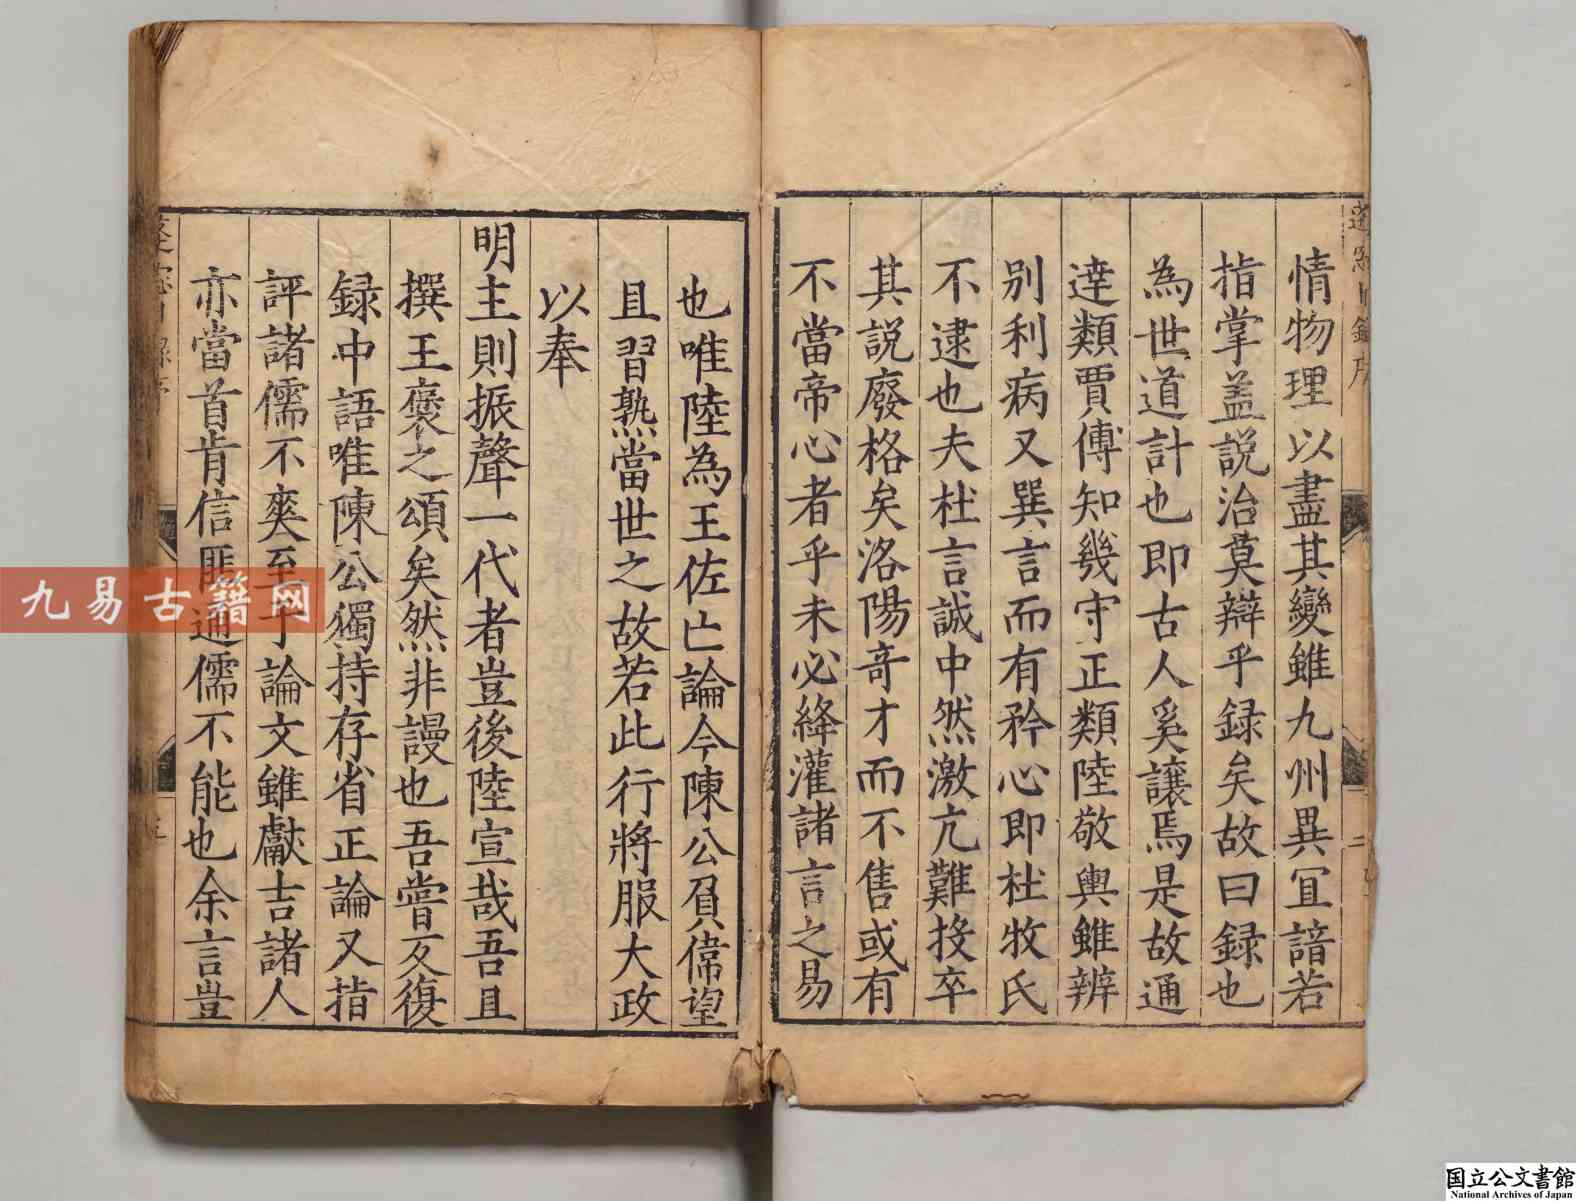 情物理以盡其變雖九州異冝諳若
指掌盖説治莫辯乎録矣故曰録也
為世道計也即古人奚讓焉是故通
達類賈傅知幾守正類陸敬輿雖辨
别利病又巽言而有矜心即杜牧氏
不逮也夫杜言誠中然激亢難投卒
其説廢格矣洛陽竒才而不售或有
不當帝心者乎未必絳灌諸言之易
也唯陸為王佐亡論今陳公負偉望
且習熟當世之故若此行將服大政
以奉
明主則振聲一代者豈後陸宣哉吾且
撰王褒之頌矣然非謾也吾嘗反復
録中語唯陳公獨持存省正論又指
評諸儒不爽至于論文雖獻吉諸人
亦當首肯信匪通儒不能也余言豈
二
三
九易古籍网
国立公文書館
National Archives of Japan